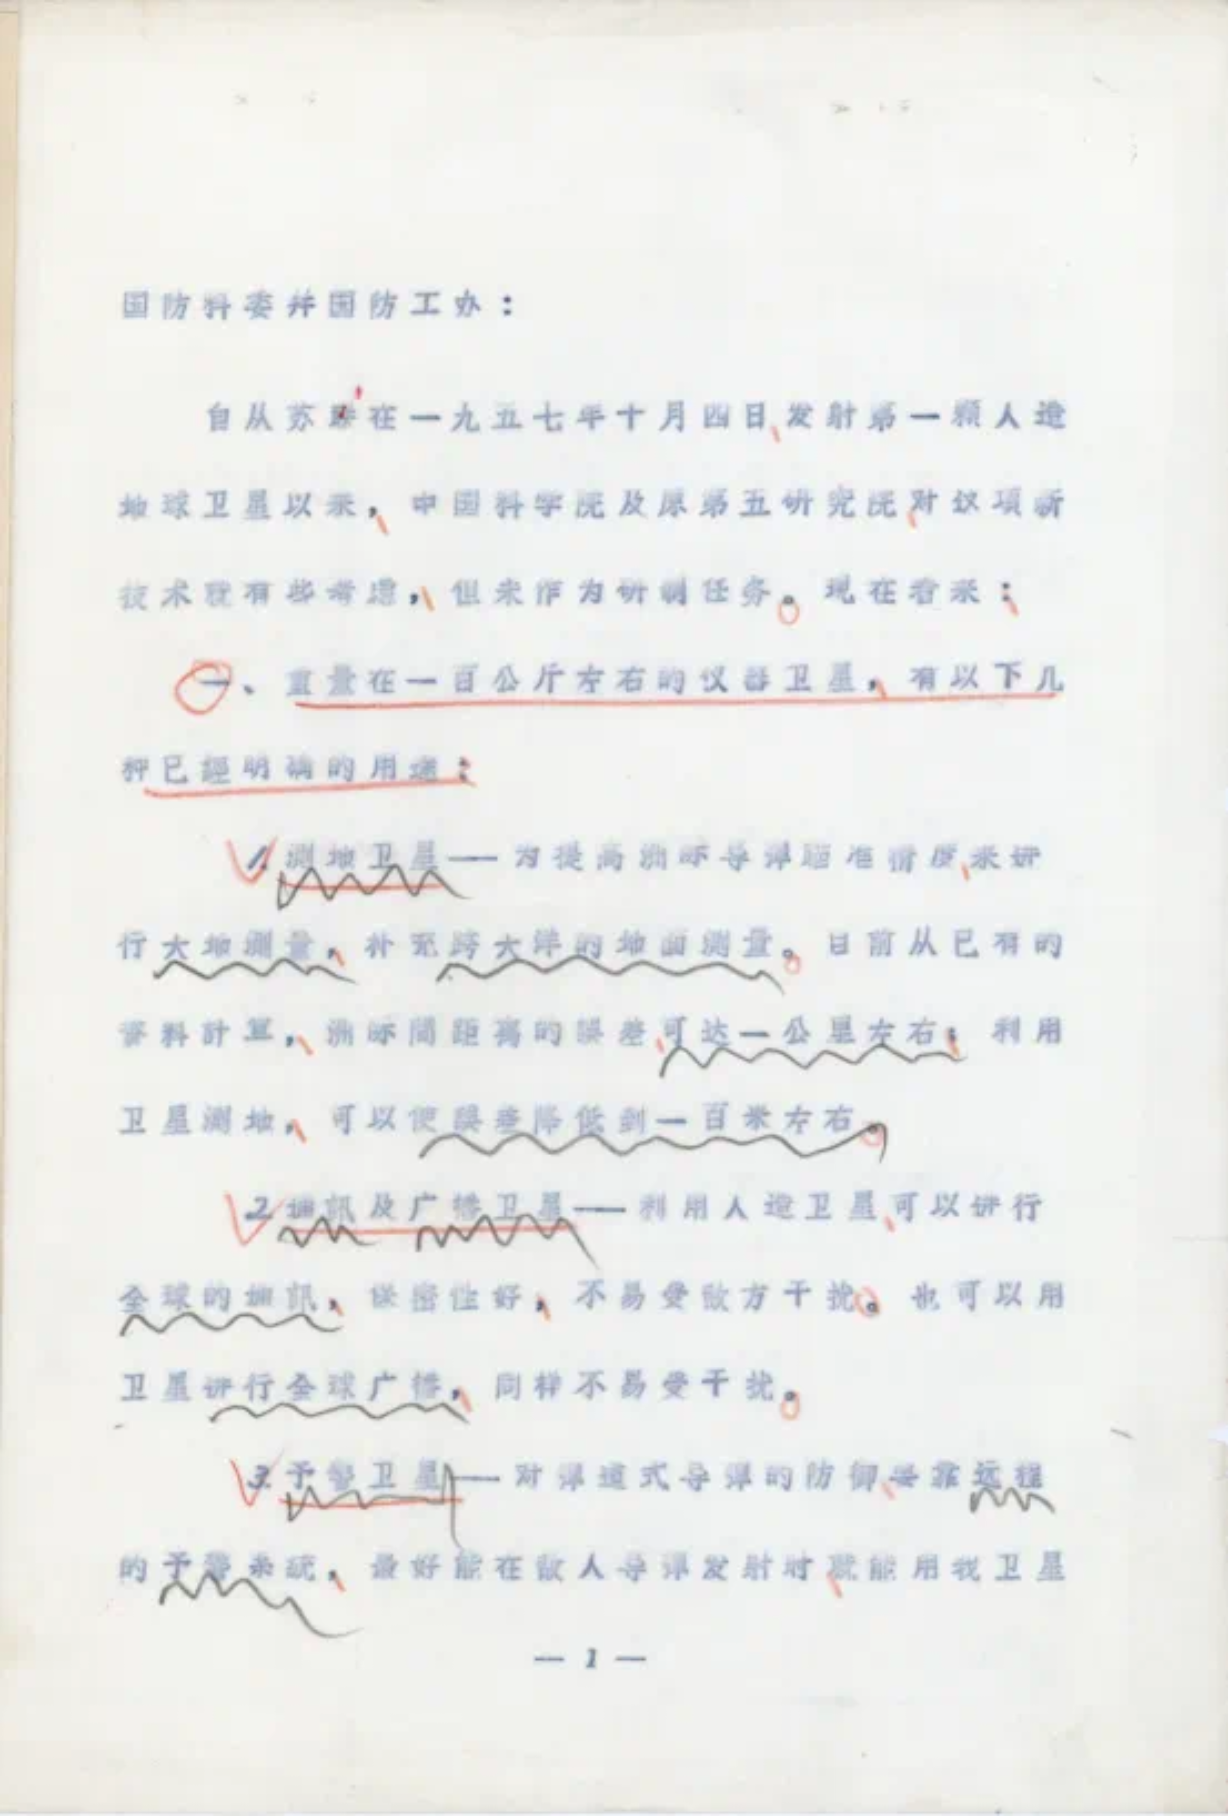 国防科委并国防工办：
自从苏联在一九五七年十月四日发射第一颗人造
地球卫星以来，中国科学院及原第五研究院对这项新
技术就有些考虑，但未作为研制任务。现在看来：
一、重量在一百公斤左右的仪器卫星，有以下几
种已經明确的用途：
1.测地卫星——为提高洲际导弹瞄准精度来进
行大地测量，补充跨大洋的地面测量。目前从已有的
資料計算，洲际間距离的誤差可达一公里左右；利用
卫星测地，可以使誤差降低到一百米左右。
2.通訊及广播卫星——利用人造卫星可以进行
全球的通訊，保密性好，不易受敌方干扰。也可以用
卫星进行全球广播，同样不易受干扰。
3.予警卫星——对弹道式导弹的防御要靠远程
的予警系统，最好能在敌人导弹发射时就能用我卫星
— 1 —